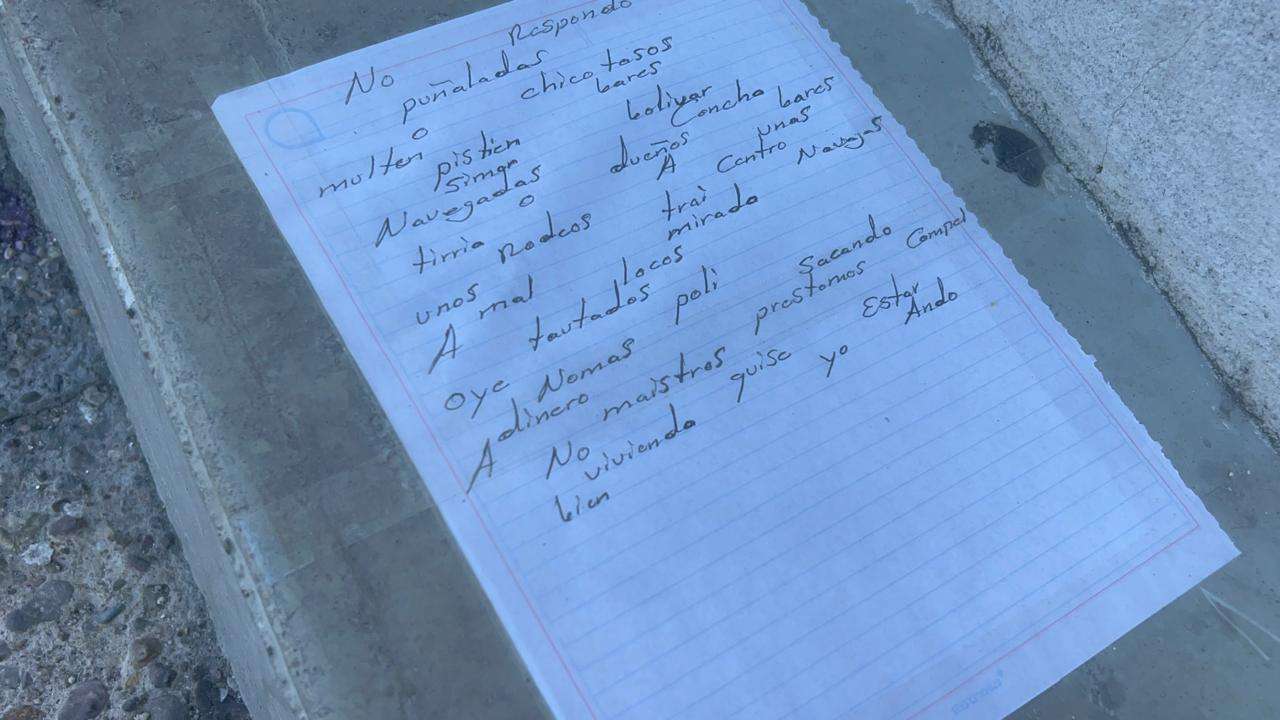 No Respondo
puñaladas chicotasos
o bares
multen bolivar
pistien Concho bares
simon dueños unas
Navegadas A Centro Navajas
o
tirria Rodeos trai
unos mirado
A mal locos
tautados Sacando Compa
oye poli prestamos
Nomas Estar
A dinero Ando
No maistros quise yo
viviendo
bien